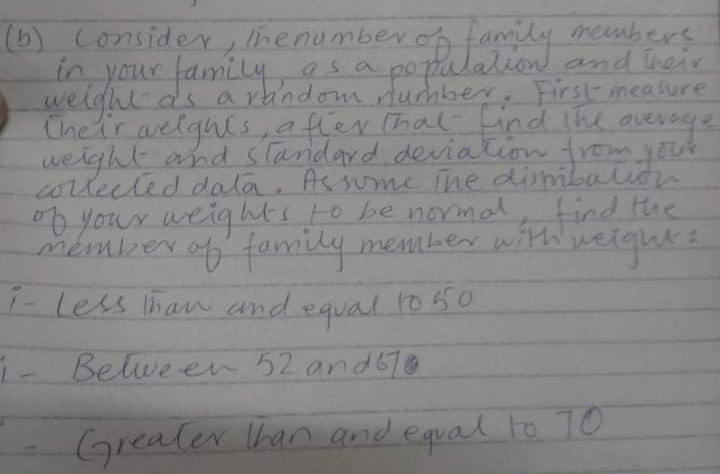 (b) Consider, the number of family members
in your family, as a population and their
weight as a random number. First measure
their weights, after that find the average
weight and standard deviation from your
collected data. Assume the distribution
of your weights to be normal, find the
member of family member with weight:
i- less than and equal to 50
i- Between 52 and
- Greater than and equal to 70